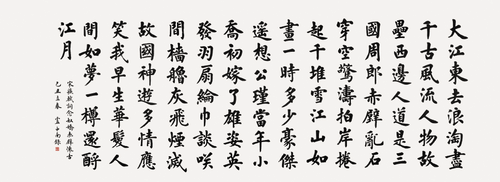 大江東去浪淘盡
千古風流人物故
壘西邊人道是三
國周郎赤壁亂石
穿空驚濤拍岸捲
起千堆雪江山如
畫一時多少豪傑
遙想公瑾當年小
喬初嫁了雄姿英
發羽扇綸巾談咲
間檣艣灰飛煙滅
故國神遊多情應
笑我早生華髮人
間如夢一樽還酹
江月
宋蘇軾詞念奴嬌赤壁懷古
己丑立春